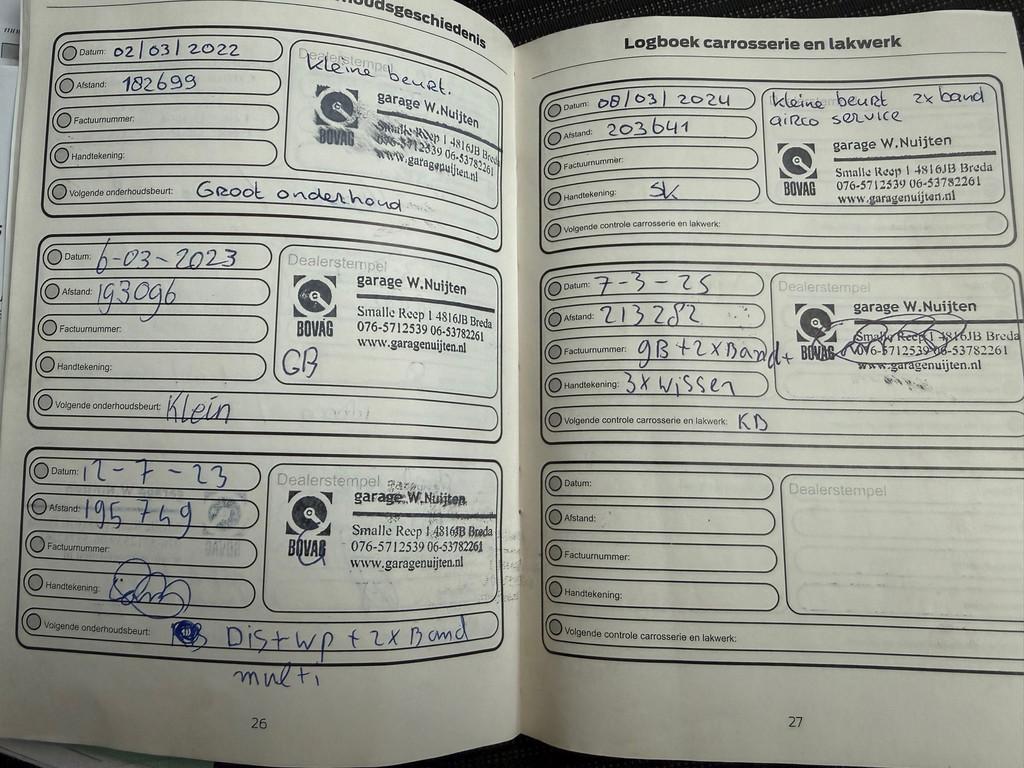 houdsgeschiedenis
Datum: 02/03/2022
Afstand: 182699
Factuurnummer:
Handtekening:
Volgende onderhoudsbeurt: Groot onderhoud
Dealerstempel
kleine beurt.
BOVAG
garage W.Nuijten
Smalle Reep 1 4816JB Breda
076-5712539 06-53782261
www.garagenuijten.nl
Datum: 6-03-2023
Afstand: 193096
Factuurnummer:
Handtekening:
Volgende onderhoudsbeurt: Klein
Dealerstempel
BOVAG
garage W.Nuijten
Smalle Reep 1 4816JB Breda
076-5712539 06-53782261
www.garagenuijten.nl
GB
Datum: 12-7-23
Afstand: 195749
Factuurnummer:
Handtekening:
Volgende onderhoudsbeurt: Dis+wp + 2x Band
multi
Dealerstempel
BOVAG
garage W.Nuijten
Smalle Reep 1 4816JB Breda
076-5712539 06-53782261
www.garagenuijten.nl
26
Logboek carrosserie en lakwerk
Datum: 08/03/2024
Afstand: 203641
Factuurnummer:
Handtekening: SK
Volgende controle carrosserie en lakwerk:
kleine beurt 2x band
airco service
BOVAG
garage W.Nuijten
Smalle Reep 1 4816JB Breda
076-5712539 06-53782261
www.garagenuijten.nl
Datum: 7-3-25
Afstand: 213282
Factuurnummer: gB + 2xBand+
Handtekening: 3x wisser
Volgende controle carrosserie en lakwerk: KB
Dealerstempel
BOVAG
garage W.Nuijten
Smalle Reep 1 4816JB Breda
076-5712539 06-53782261
www.garagenuijten.nl
Datum:
Afstand:
Factuurnummer:
Handtekening:
Volgende controle carrosserie en lakwerk:
Dealerstempel
27